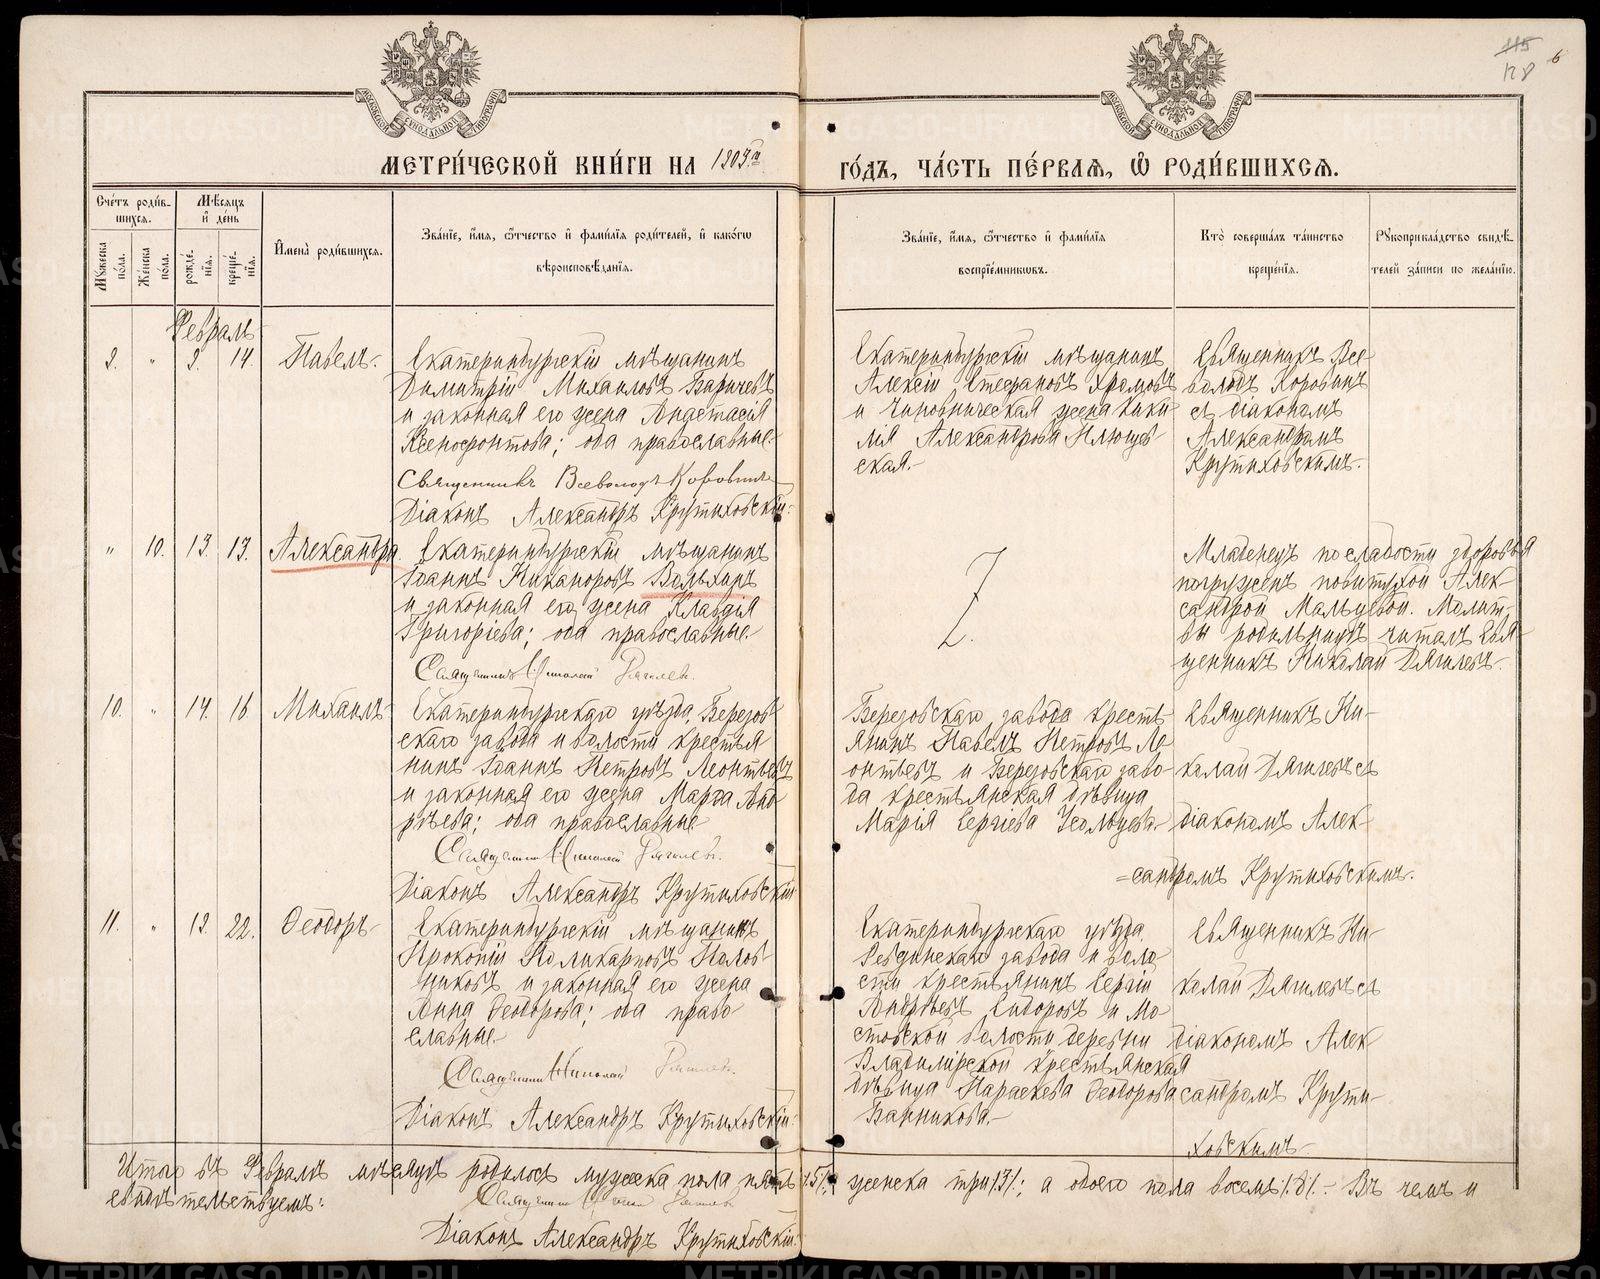 115
128
6
МОСКОВСКОЙ СѴНОДАЛЬНОЙ ТИПОГРАФІИ
МОСКОВСКОЙ СѴНОДАЛЬНОЙ ТИПОГРАФІИ
МЕТРИ́ЧЕСКОЙ КНИ́ГИ НА 1903 й ГО́ДЪ, ЧА́СТЬ ПЕ́РВАѦ, Ѿ РОДИ́ВШИХСѦ.
Сче́тъ роди́в-
шихся.
Мѣ́сяцъ
и҆ де́нь
Му́жеска по́ла.
Же́нска по́ла.
рожде́-
нїя.
креще́-
нїя.
И҆мена̀ роди́вшихся.
Зва́нїе, и҆́мя, ѻ҆́тчество и҆ фами́лїя роди́телей, и҆ како́гѡ
вѣроисповѣ́данїя.
Зва́нїе, и҆́мя, ѻ҆́тчество и҆ фами́лїя
воспрїе́мникѡвъ.
Кто̀ соверша́лъ та́инство
креще́нїя.
Рꙋкоприкла́дство свидѣ́-
телей за́писи по жела́нїю.
Февраль
9. " 9. 14. Павелъ.
Екатеринбургскій мѣщанинъ
Димитрій Михаиловъ Баричевъ
и законная его жена Анастасія
Ксенофонтова; оба православные.
Священникъ Всеволодъ Коровинъ
Діаконъ Александръ Крутиховскій.
Екатеринбургскій мѣщанинъ
Алексій Стефановъ Храмовъ
и чиновническая жена Кики
лія Александрова Илющев
ская.
Священникъ Все
володъ Коровинъ
съ діакономъ
Александромъ
Крутиховскимъ.
" 10. 13. 13. Александра
Екатеринбургскій мѣщанинъ
Іоаннъ Никаноровъ Волыхинъ
и законная его жена Клавдія
Григоріева; оба православные.
Священникъ Николай Дягилевъ.
Z.
Младенецъ по слабости здоровья
погруженъ повитухой Алек
сандрой Мальцевой. Молит-
вы родильницѣ читалъ свя-
щенникъ Николай Дягилевъ.
10. " 14. 16. Михаилъ
Екатеринбургскаго уѣзда, Березов
скаго завода и волости крестья
нинъ Іоаннъ Петровъ Леонтьевъ
и законная его жена Марѳа Анд
реева; оба православные
Священникъ Николай Дягилевъ.
Діаконъ Александръ Крутиховскій
Березовскаго завода кресть
янинъ Павелъ Петровъ Ле
онтьевъ и Березовскаго заво-
да крестьянская дѣвица
Марія Сергіева Усольцева.
Священникъ Ни-
колай Дягилевъ съ
діакономъ Алек-
=сандромъ Крутиховскимъ.
11. " 19. 22. Ѳеодоръ
Екатеринбургскій мѣщанинъ
Прокопій Поликарповъ Полов-
никовъ и законная его жена
Анна Ѳеодорова; оба право
славные.
Священникъ Николай Дягилевъ.
Діаконъ Александръ Крутиховскій.
Екатеринбургскаго уѣзда,
Ревдинскаго завода и воло
сти крестьянинъ Сергій
Андреевъ Сидоровъ и Мо
стовской волости деревни
Владимірской крестьянская
дѣвица Параскева Ѳеодорова
Банникова.
Священникъ Ни-
колай Дягилевъ съ
діакономъ Алек
сандромъ Крути-
ховскимъ
Итого въ Февралѣ мѣсяцѣ родилось мужеска пола пять /5/; женска три /3/; а обоего пола восемь /8/. Въ чемъ и
свидѣтельствуемъ:
Священникъ Николай Дягилевъ
Діаконъ Александръ Крутиховскій.
METRIKI.GASO-URAL.RU